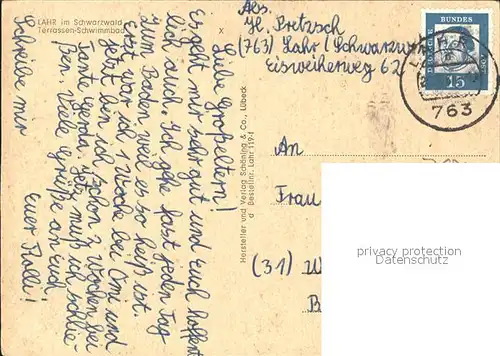 LAHR im Schwarzwald
Terrassen-Schwimmbad
x
Liebe Großeltern!
Es geht mir sehr gut und Euch hoffent
lich auch. Ich gehe fast jeden Tag
zum Baden, weil es so heiß ist.
Erst war ich 1 Woche bei Omi und
jetzt bin ich schon 2 Wochen bei
Tante Gerda. Jetzt muß ich schlie-
ßen. Viele Grüße an Euch
euer Ralli!
Schreibe mir
Hersteller und Verlag Schöning & Co., Lübeck
d Bestellnr. Lahr 1194
Abs.
H. Pretzsch
(763) Lahr (Schwarzw
Eisweiherweg 62
DEUTSCHE BUNDES
15
763
An
Frau
(31) W
B
privacy protection
Datenschutz